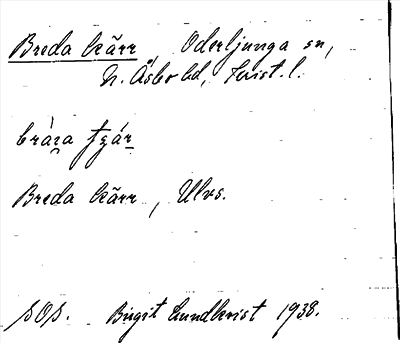 Breda Kärr, Oderljunga sn,
N. Åsbo hd, Krist. l.
Breda Kärr, Ulvs.
SOS. Birgit Lundkvist 1938.